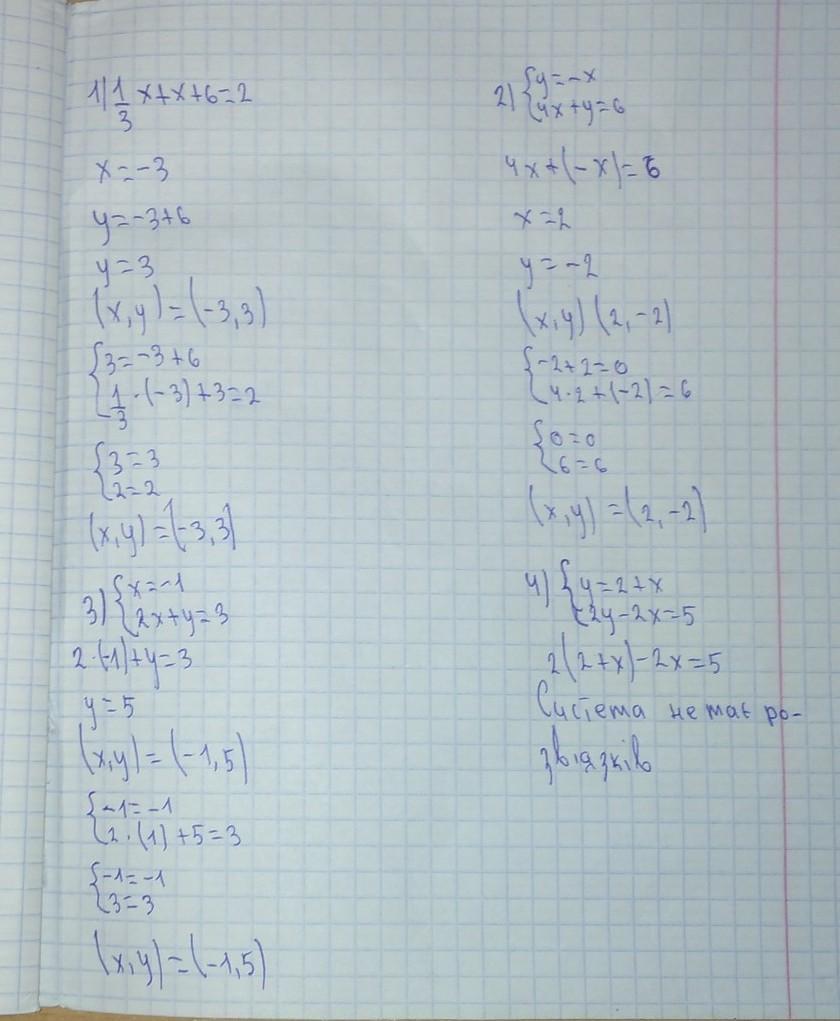 1) 1/3 x+x+6=2
x=-3
y=-3+6
y=3
(x,y)=(-3,3)
{3=-3+6
{1/3·(-3)+3=2
{3=3
{2=2
(x,y)=(-3,3)
3) {x=-1
{2x+y=3
2·(-1)+y=3
y=5
(x,y)=(-1,5)
{-1=-1
{2·(1)+5=3
{-1=-1
{3=3
(x,y)=(-1,5)
2) {y=-x
{4x+y=6
4x+(-x)=6
x=2
y=-2
(x,y)(2,-2)
{-2+2=0
{4·2+(-2)=6
{0=0
{6=6
(x,y)=(2,-2)
4) {y=2+x
{2y-2x=5
2(2+x)-2x=5
Система не має ро-
звіязків